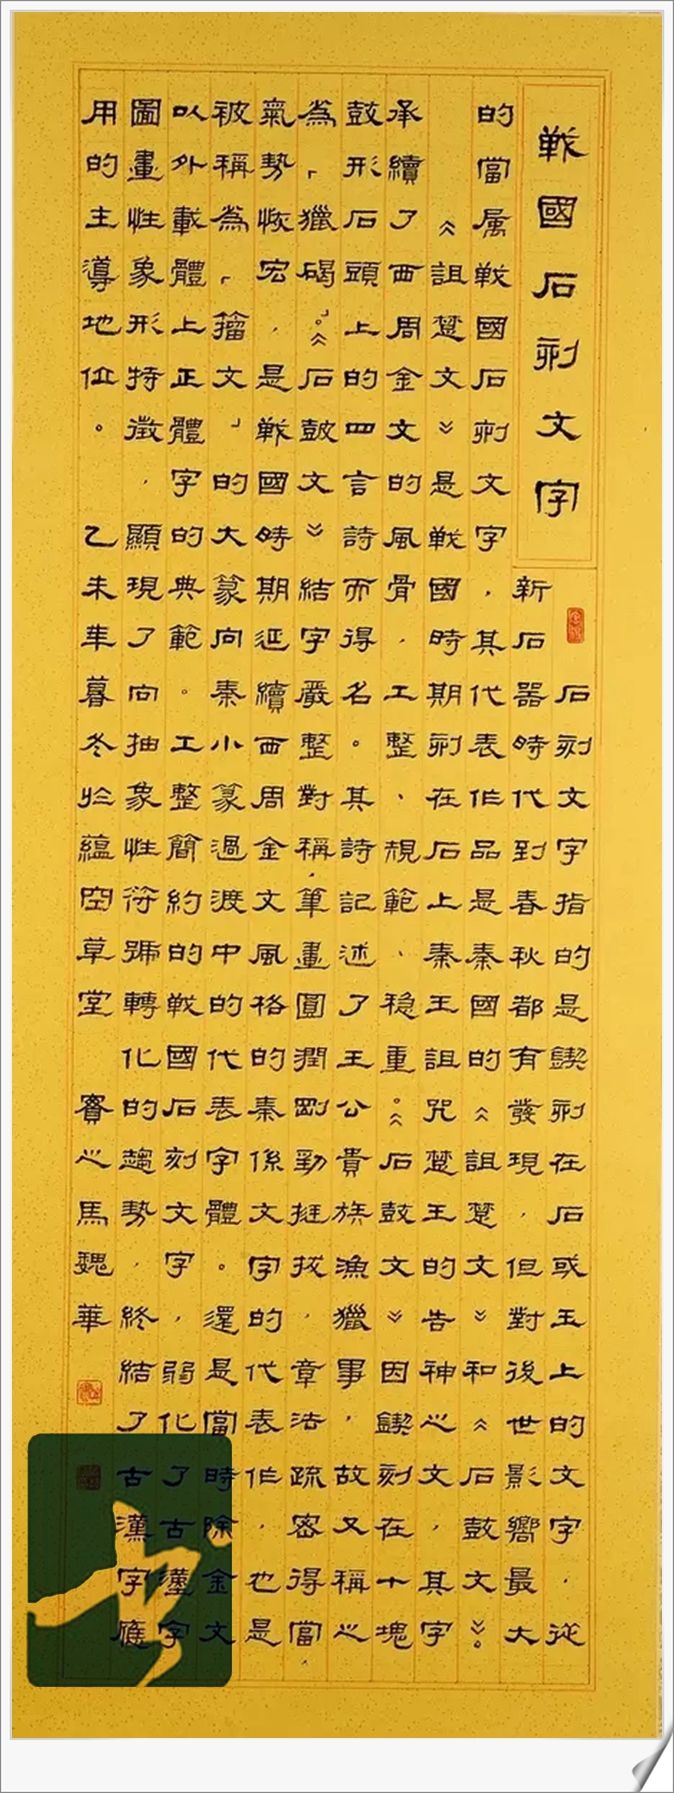 戰國石刻文字
石刻文字指的是鍥刻在石或玉上的文字，從
新石器時代到春秋都有發現，但對後世影嚮最大
的當属戰國石刻文字，其代表作品是秦國的《詛楚文》和《石鼓文》。
《詛楚文》是戰國時期刻在石上秦王詛咒楚王的告神之文，其字
承續了西周金文的風骨，工整、規範、稳重。《石鼓文》因鍥刻在十塊
鼓形石頭上的四言詩而得名。其詩記述了王公貴族漁獵事，故又稱之
為「獵碣」。《石鼓文》結字嚴整對稱，筆畫圓潤剛勁挺拔，章法疏密得當，
氣勢恢宏，是戰國時期延續西周金文風格的秦係文字的代表作，也是
被稱為「籀文」的大篆向秦小篆過渡中的代表字體。還是當時除金文
以外載體上正體字的典範。工整簡約的戰國石刻文字，弱化了古漢字
圖畫性象形特徵，顯現了向抽象性符號轉化的趨勢，終結了古漢字應
用的主導地位。乙未年暮冬於蘊空草堂 賽之馬魏華